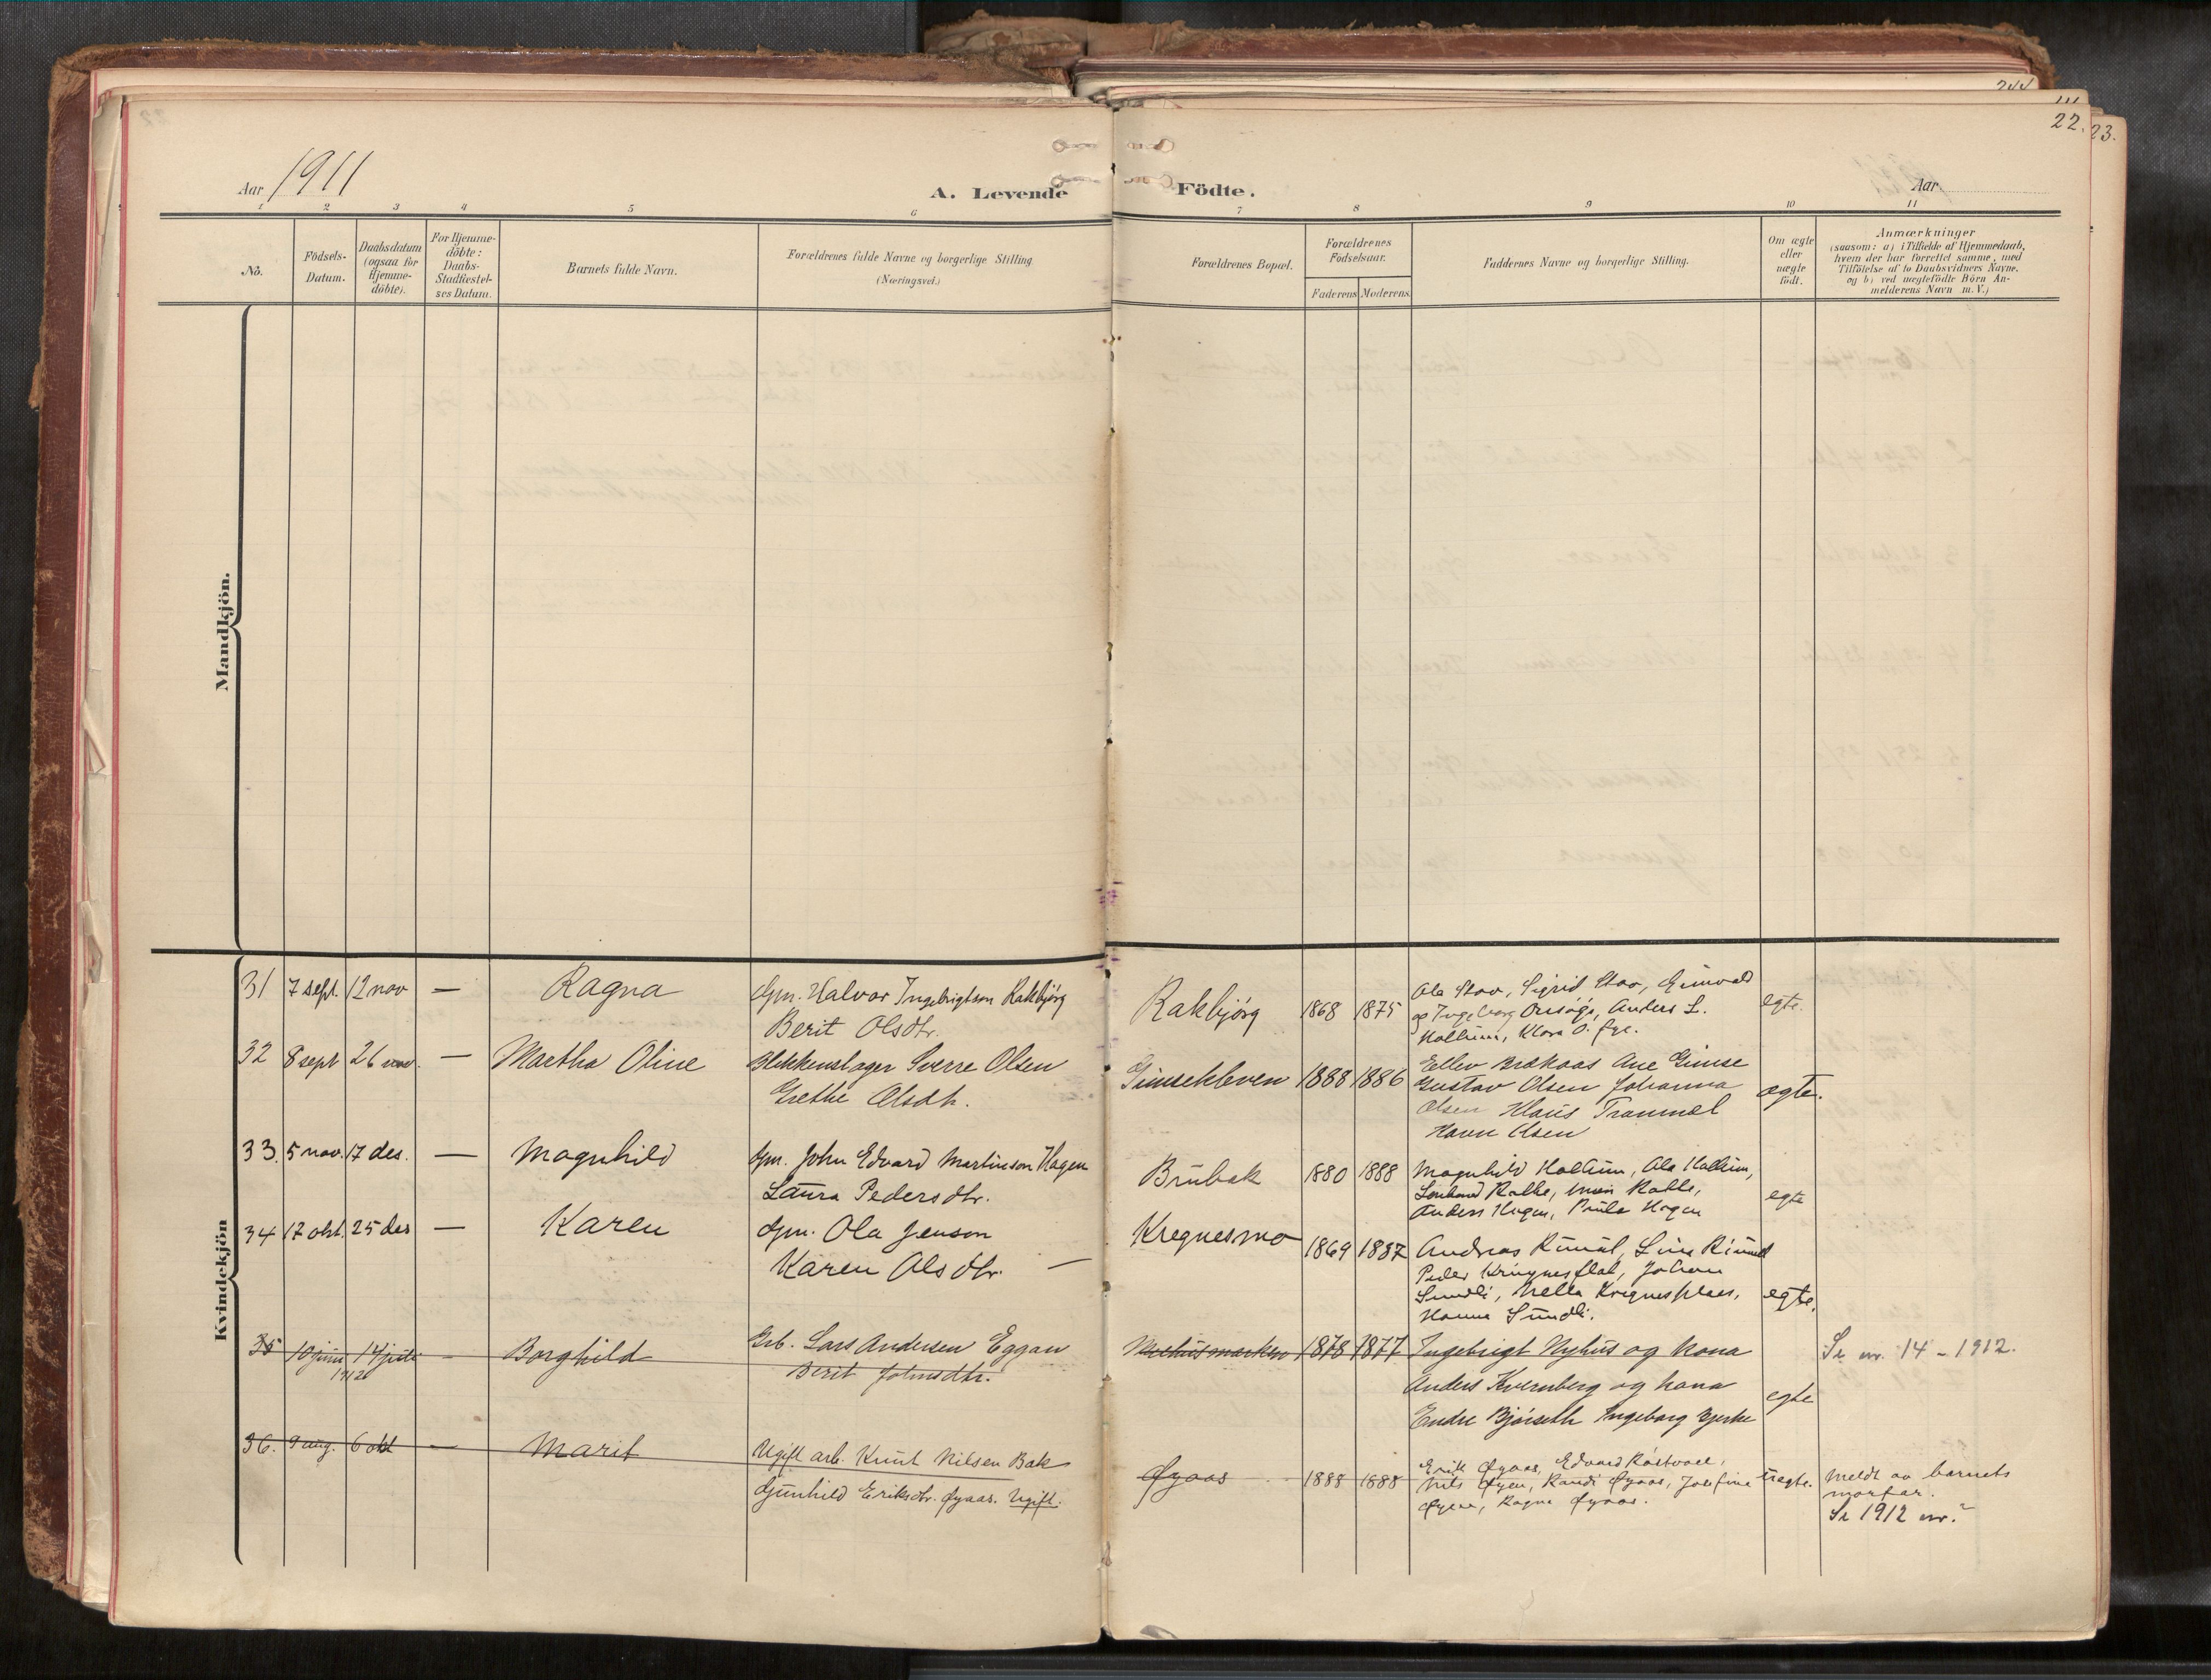 22.
23.
Aar 1911
A. Levende Födte.
Aar
1 2 3 4 5 6 7 8 9 10 11
No.
Födsels-
Datum.
Daabsdatum
(ogsaa for
Hjemme-
döbte).
For Hjemme-
döbte:
Daabs-
Stadfæstel-
ses Datum.
Barnets fulde Navn.
Forældrenes fulde Navne og borgerlige Stilling
(Næringsvei.)
Forældrenes Bopæl.
Forældrenes
Födselsaar.
Faderens
Moderens
Faddernes Navne og borgerlige Stilling.
Om ægte
eller
uægte
födt.
Anmærkninger
(saasom: a) i Tilfælde af Hjemmedaab,
hvem der har forrettet samme, med
Tilföielse af to Daabsvidners Navne,
og b) ved uægtefödte Börn An-
melderens Navn m. V.)
Mandkjön.
Kvindekjön
31 7 sept. 12 nov — Ragna
Gm. Halvor Ingebrigtson Rakbjørg
Berit Olsdtr.
Rakbjørg 1868 1875
Ola Stav, Sigrid Stav,
og Ingeborg Anders L.
Klara O. Øye.
egte.
32 8 sept 26 nov. — Martha Oline
Blikkenslager Sverre Olsen
Grethe Olsdtr.
Gimsekleven 1888 1886
Ellev Brækaas Ane Gimse
Gustav Olsen Johanna
Olsen Hans Trammel
Olsen
ægte.
33. 5 nov. 17 des. — Magnhild
Gm. John Edvard Martinson Hagen
Laura Pedersdtr.
Brubak 1880 1888
Magnhild Ola
Anders Hagen, Paula Hagen
egte
34 17 okt. 25 des — Karen
Gm. Ola Jenson
Karen Olsdtr. —
Kregnesmo 1869 1887
Andreas Line
Peder Johan
Sundli,
Hanna Sundli.
egte.
35 10 juni 14 juli — Borghild
1912
Arb. Lars Andersen Eggan
Berit Johnsdtr.
1878 1877
Ingebrigt Nyhus og kona
Anders Kvernberg og kona
Endre Bjørseth Ingeborg Bjerke
egte
Se nr. 14 - 1912.
36. 9 aug. 6 okt — Marit
Ugift arb. Knut Nilsen Bak
Gunhild Eriksdtr. Øyaas. Ugift.
Øyaas 1888 1888
Erik Øyaas, Edvard
Nils Øyen, Randi Øyaas, Josefine
Øyen, Ragna Øyaas.
uegte.
Meldt av barnets
morfar.
Se 1912 nr. 2